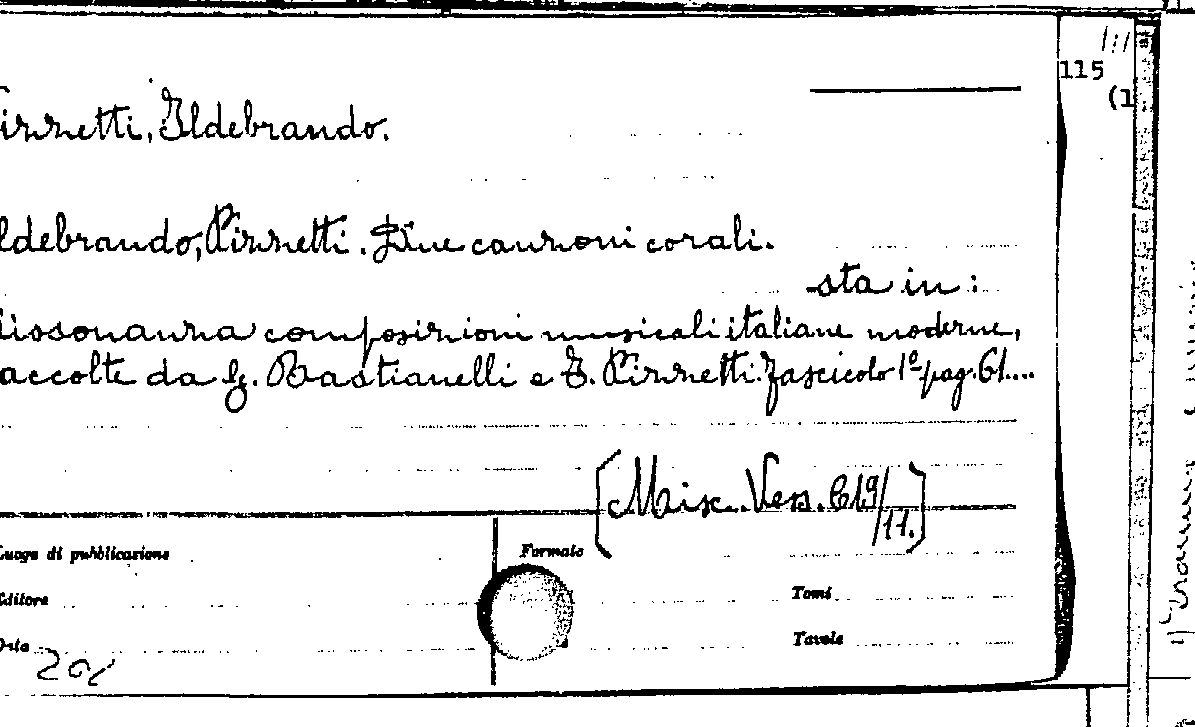 izzetti, Ildebrando.
ldebrando, Pizzetti. Due canzoni corali.
sta in:
issonanza composizioni musicali italiane moderne,
accolte da G. Bastianelli e I. Pizzetti. Fascicolo 1º pag. 61....
[Misc. Vess. C19/11.]
Luogo di pubblicazione
Formato
Editore
Tomi
Data
Tavole
201
115
(1